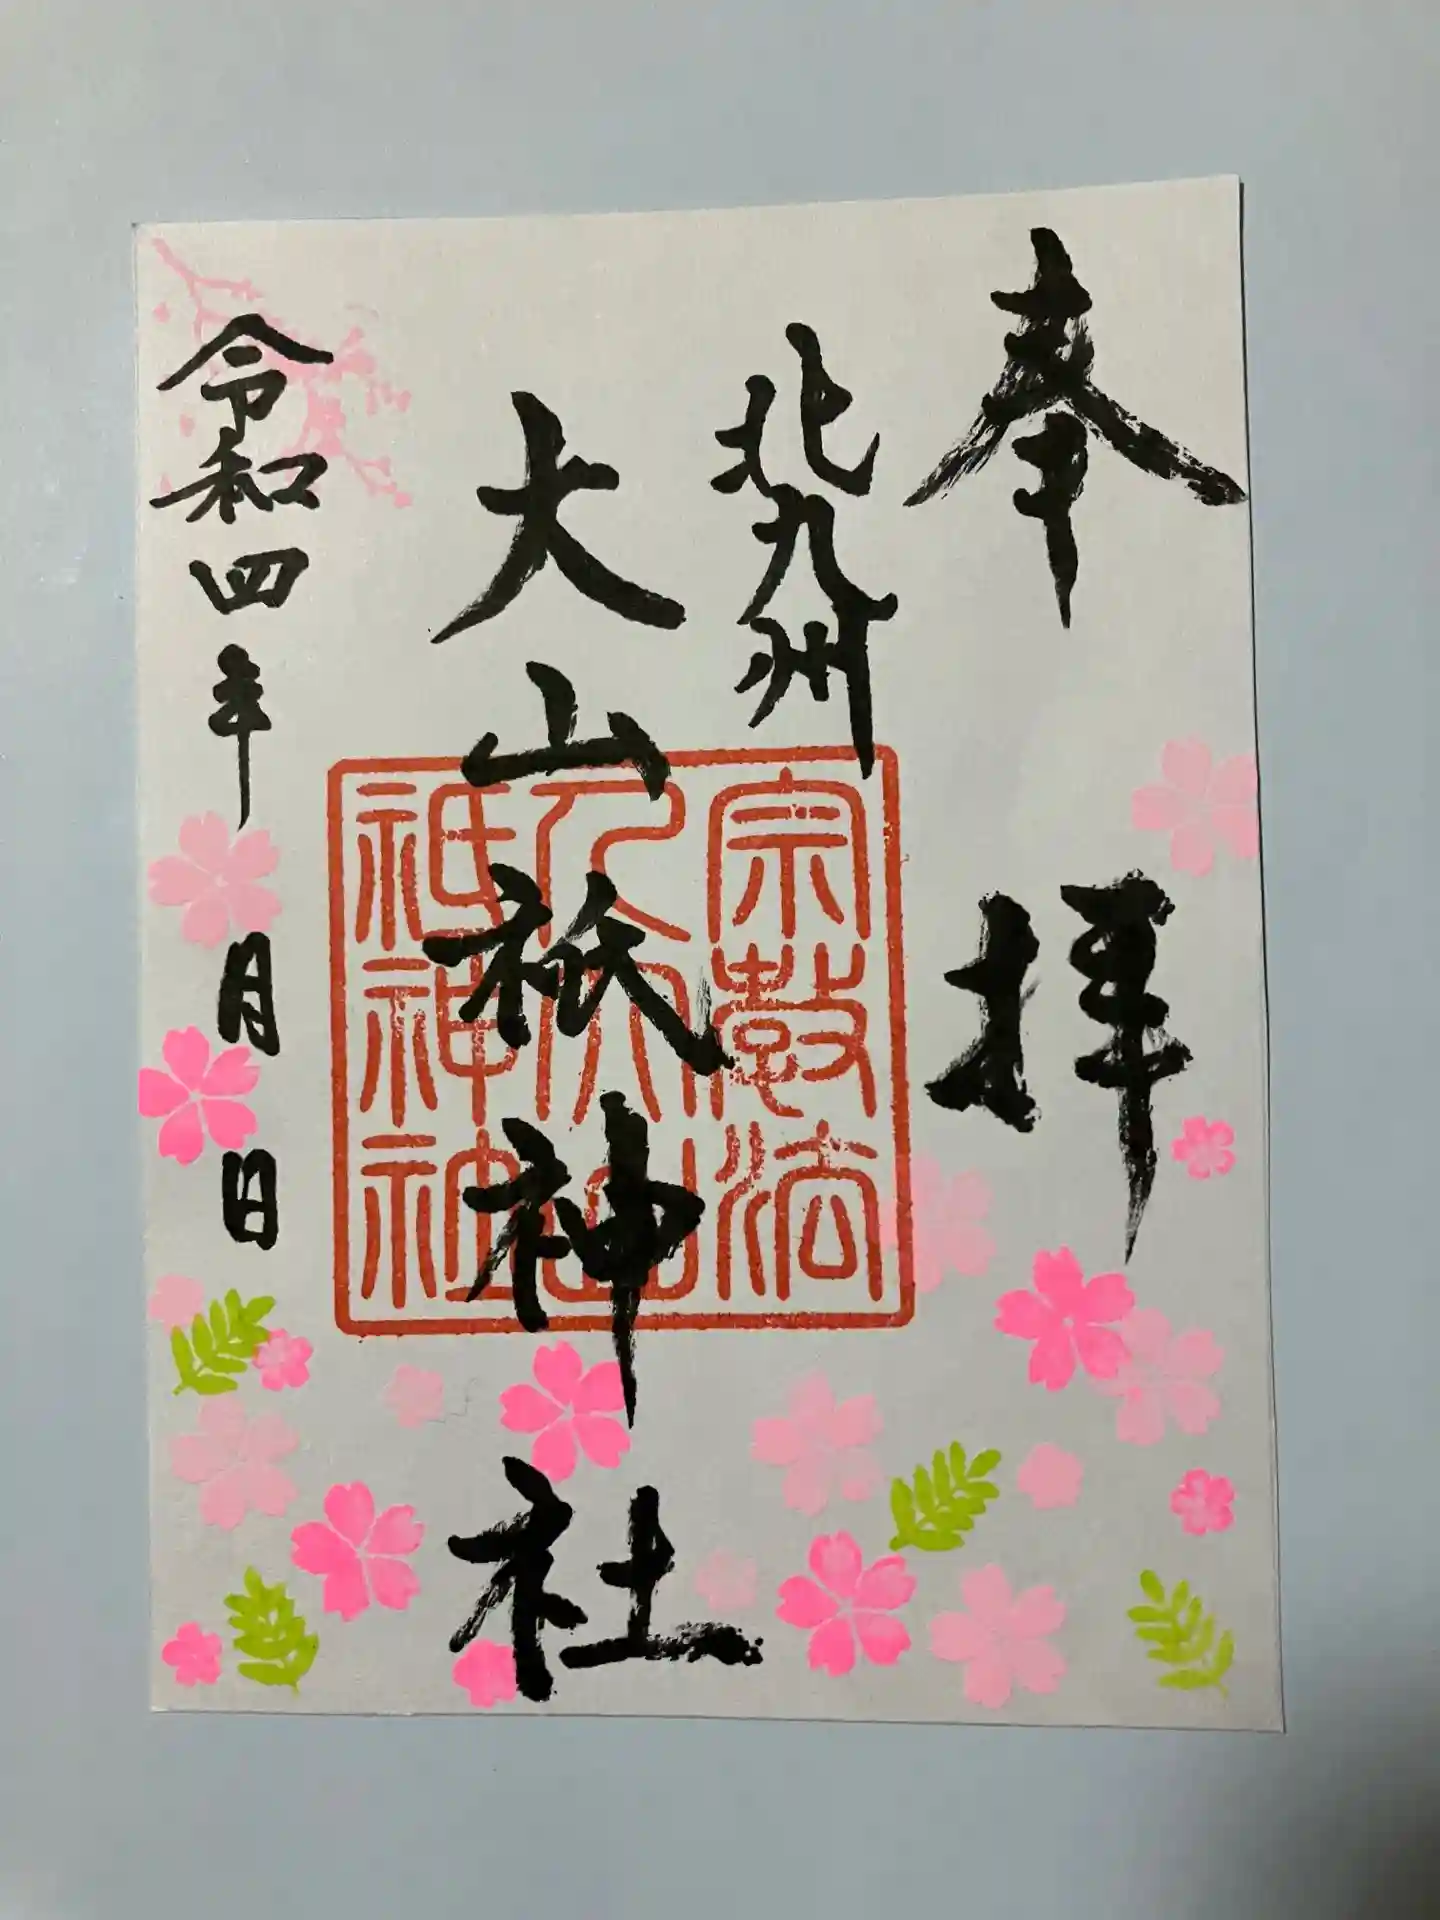 奉拝
北九州
大山祇神社
宗教法
人大山
祇神社
令和四年 月 日